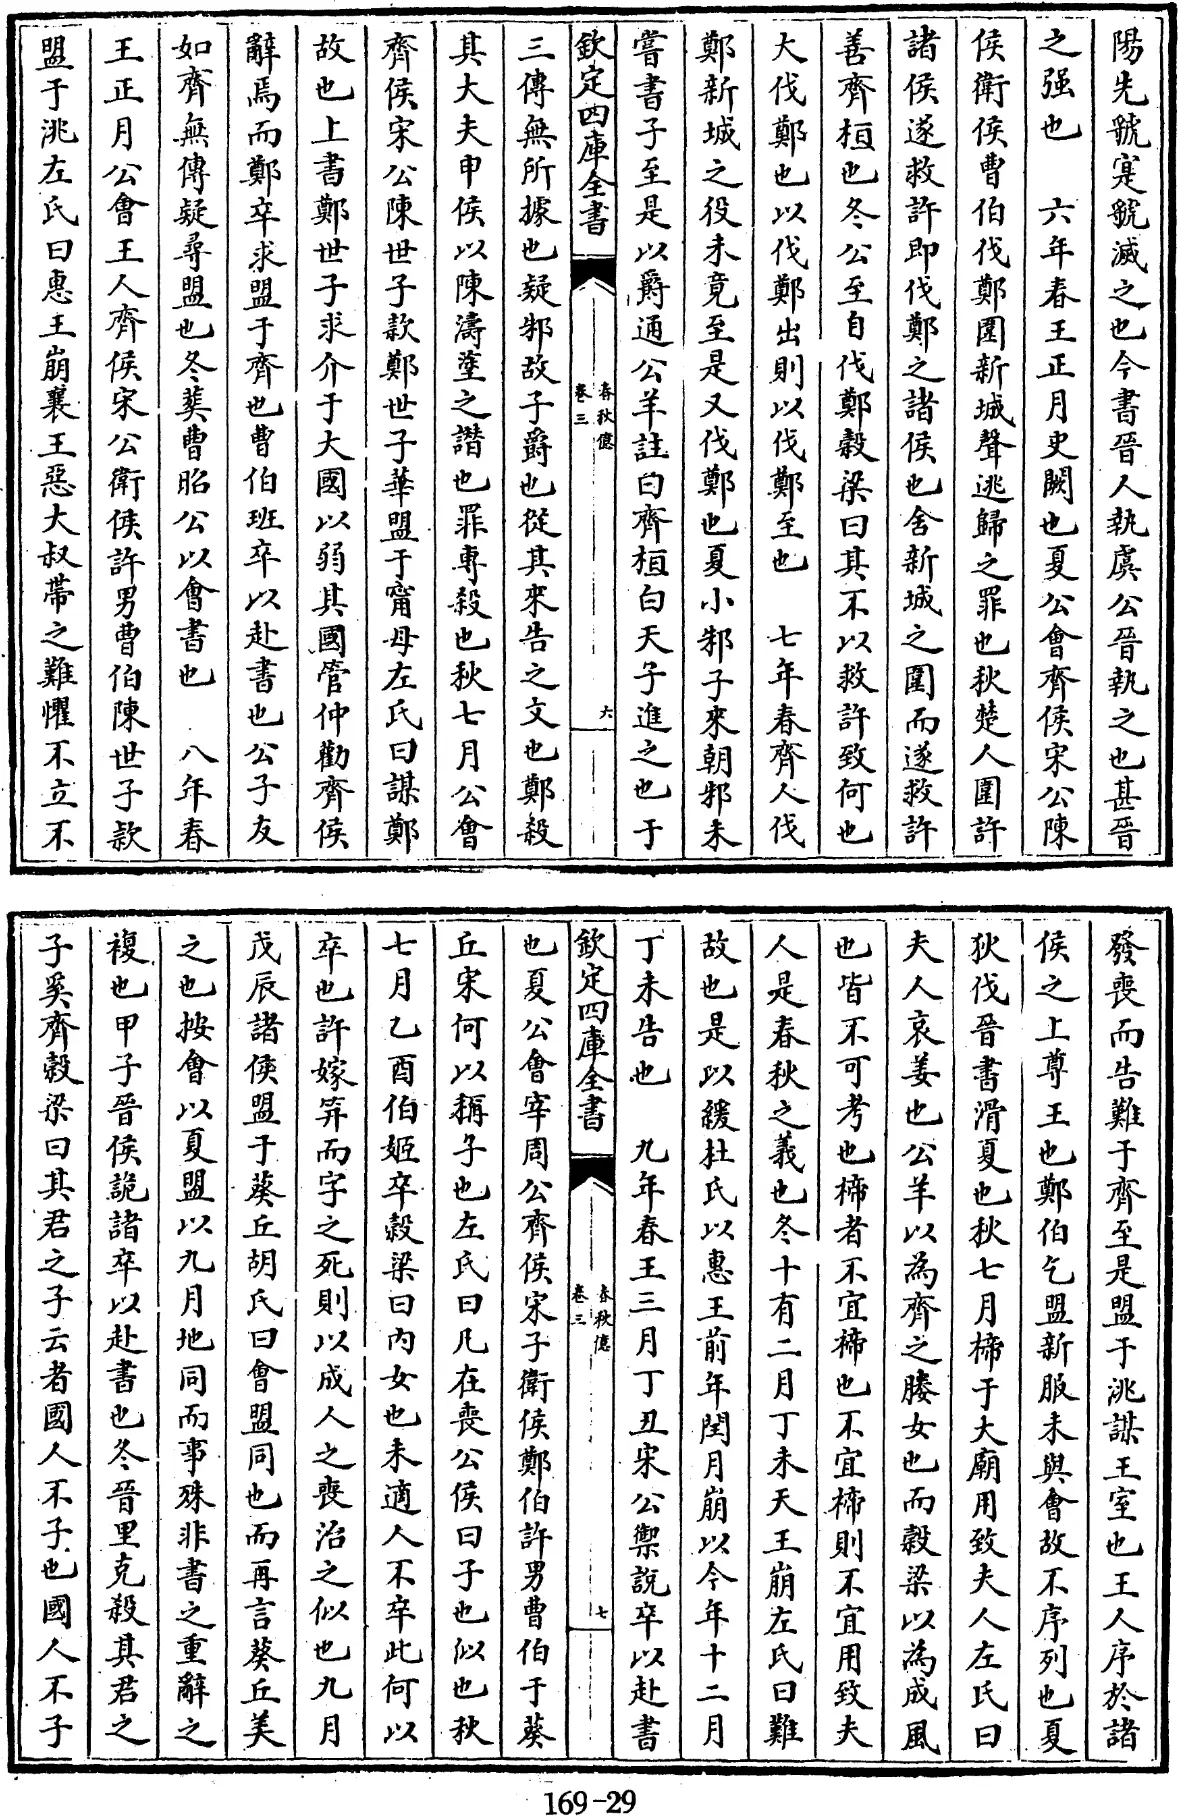 陽先虢寔虢滅之也今書晉人執虞公晉執之也甚晉
之强也　六年春王正月史闕也夏公會齊侯宋公陳
侯衛侯曹伯伐鄭圍新城聲逃歸之罪也秋楚人圍許
諸侯遂救許即伐鄭之諸侯也舍新城之圍而遂救許
善齊桓也冬公至自伐鄭穀梁曰其不以救許致何也
大伐鄭也以伐鄭出則以伐鄭至也　七年春齊人伐
鄭新城之役未竟至是又伐鄭也夏小邾子來朝邾未
嘗書子至是以爵通公羊註曰齊桓白天子進之也于
欽定四庫全書
春秋億
卷三
六
三傳無所據也疑邾故子爵也從其來告之文也鄭殺
其大夫申侯以陳濤塗之譖也罪專殺也秋七月公會
齊侯宋公陳世子款鄭世子華盟于甯母左氏曰謀鄭
故也上書鄭世子求介于大國以弱其國管仲勸齊侯
辭焉而鄭卒求盟于齊也曹伯班卒以赴書也公子友
如齊無傳疑尋盟也冬葬曹昭公以會書也　八年春
王正月公會王人齊侯宋公衛侯許男曹伯陳世子款
盟于洮左氏曰惠王崩襄王惡大叔帶之難懼不立不
發喪而告難于齊至是盟于洮謀王室也王人序於諸
侯之上尊王也鄭伯乞盟新服未與會故不序列也夏
狄伐晉書滑夏也秋七月禘于大廟用致夫人左氏曰
夫人哀姜也公羊以為齊之媵女也而穀梁以為成風
也皆不可考也禘者不宜禘也不宜禘則不宜用致夫
人是春秋之義也冬十有二月丁未天王崩左氏曰難
故也是以緩杜氏以惠王前年閏月崩以今年十二月
丁未告也　九年春王三月丁丑宋公禦說卒以赴書
欽定四庫全書
春秋億
卷三
七
也夏公會宰周公齊侯宋子衛侯鄭伯許男曹伯于葵
丘宋何以稱子也左氏曰凡在喪公侯曰子也似也秋
七月乙酉伯姬卒穀梁曰内女也未適人不卒此何以
卒也許嫁笄而字之死則以成人之喪治之似也九月
戊辰諸侯盟于葵丘胡氏曰會盟同也而再言葵丘美
之也按會以夏盟以九月地同而事殊非書之重辭之
複也甲子晉侯詭諸卒以赴書也冬晉里克殺其君之
子奚齊穀梁曰其君之子云者國人不子也國人不子
169-29